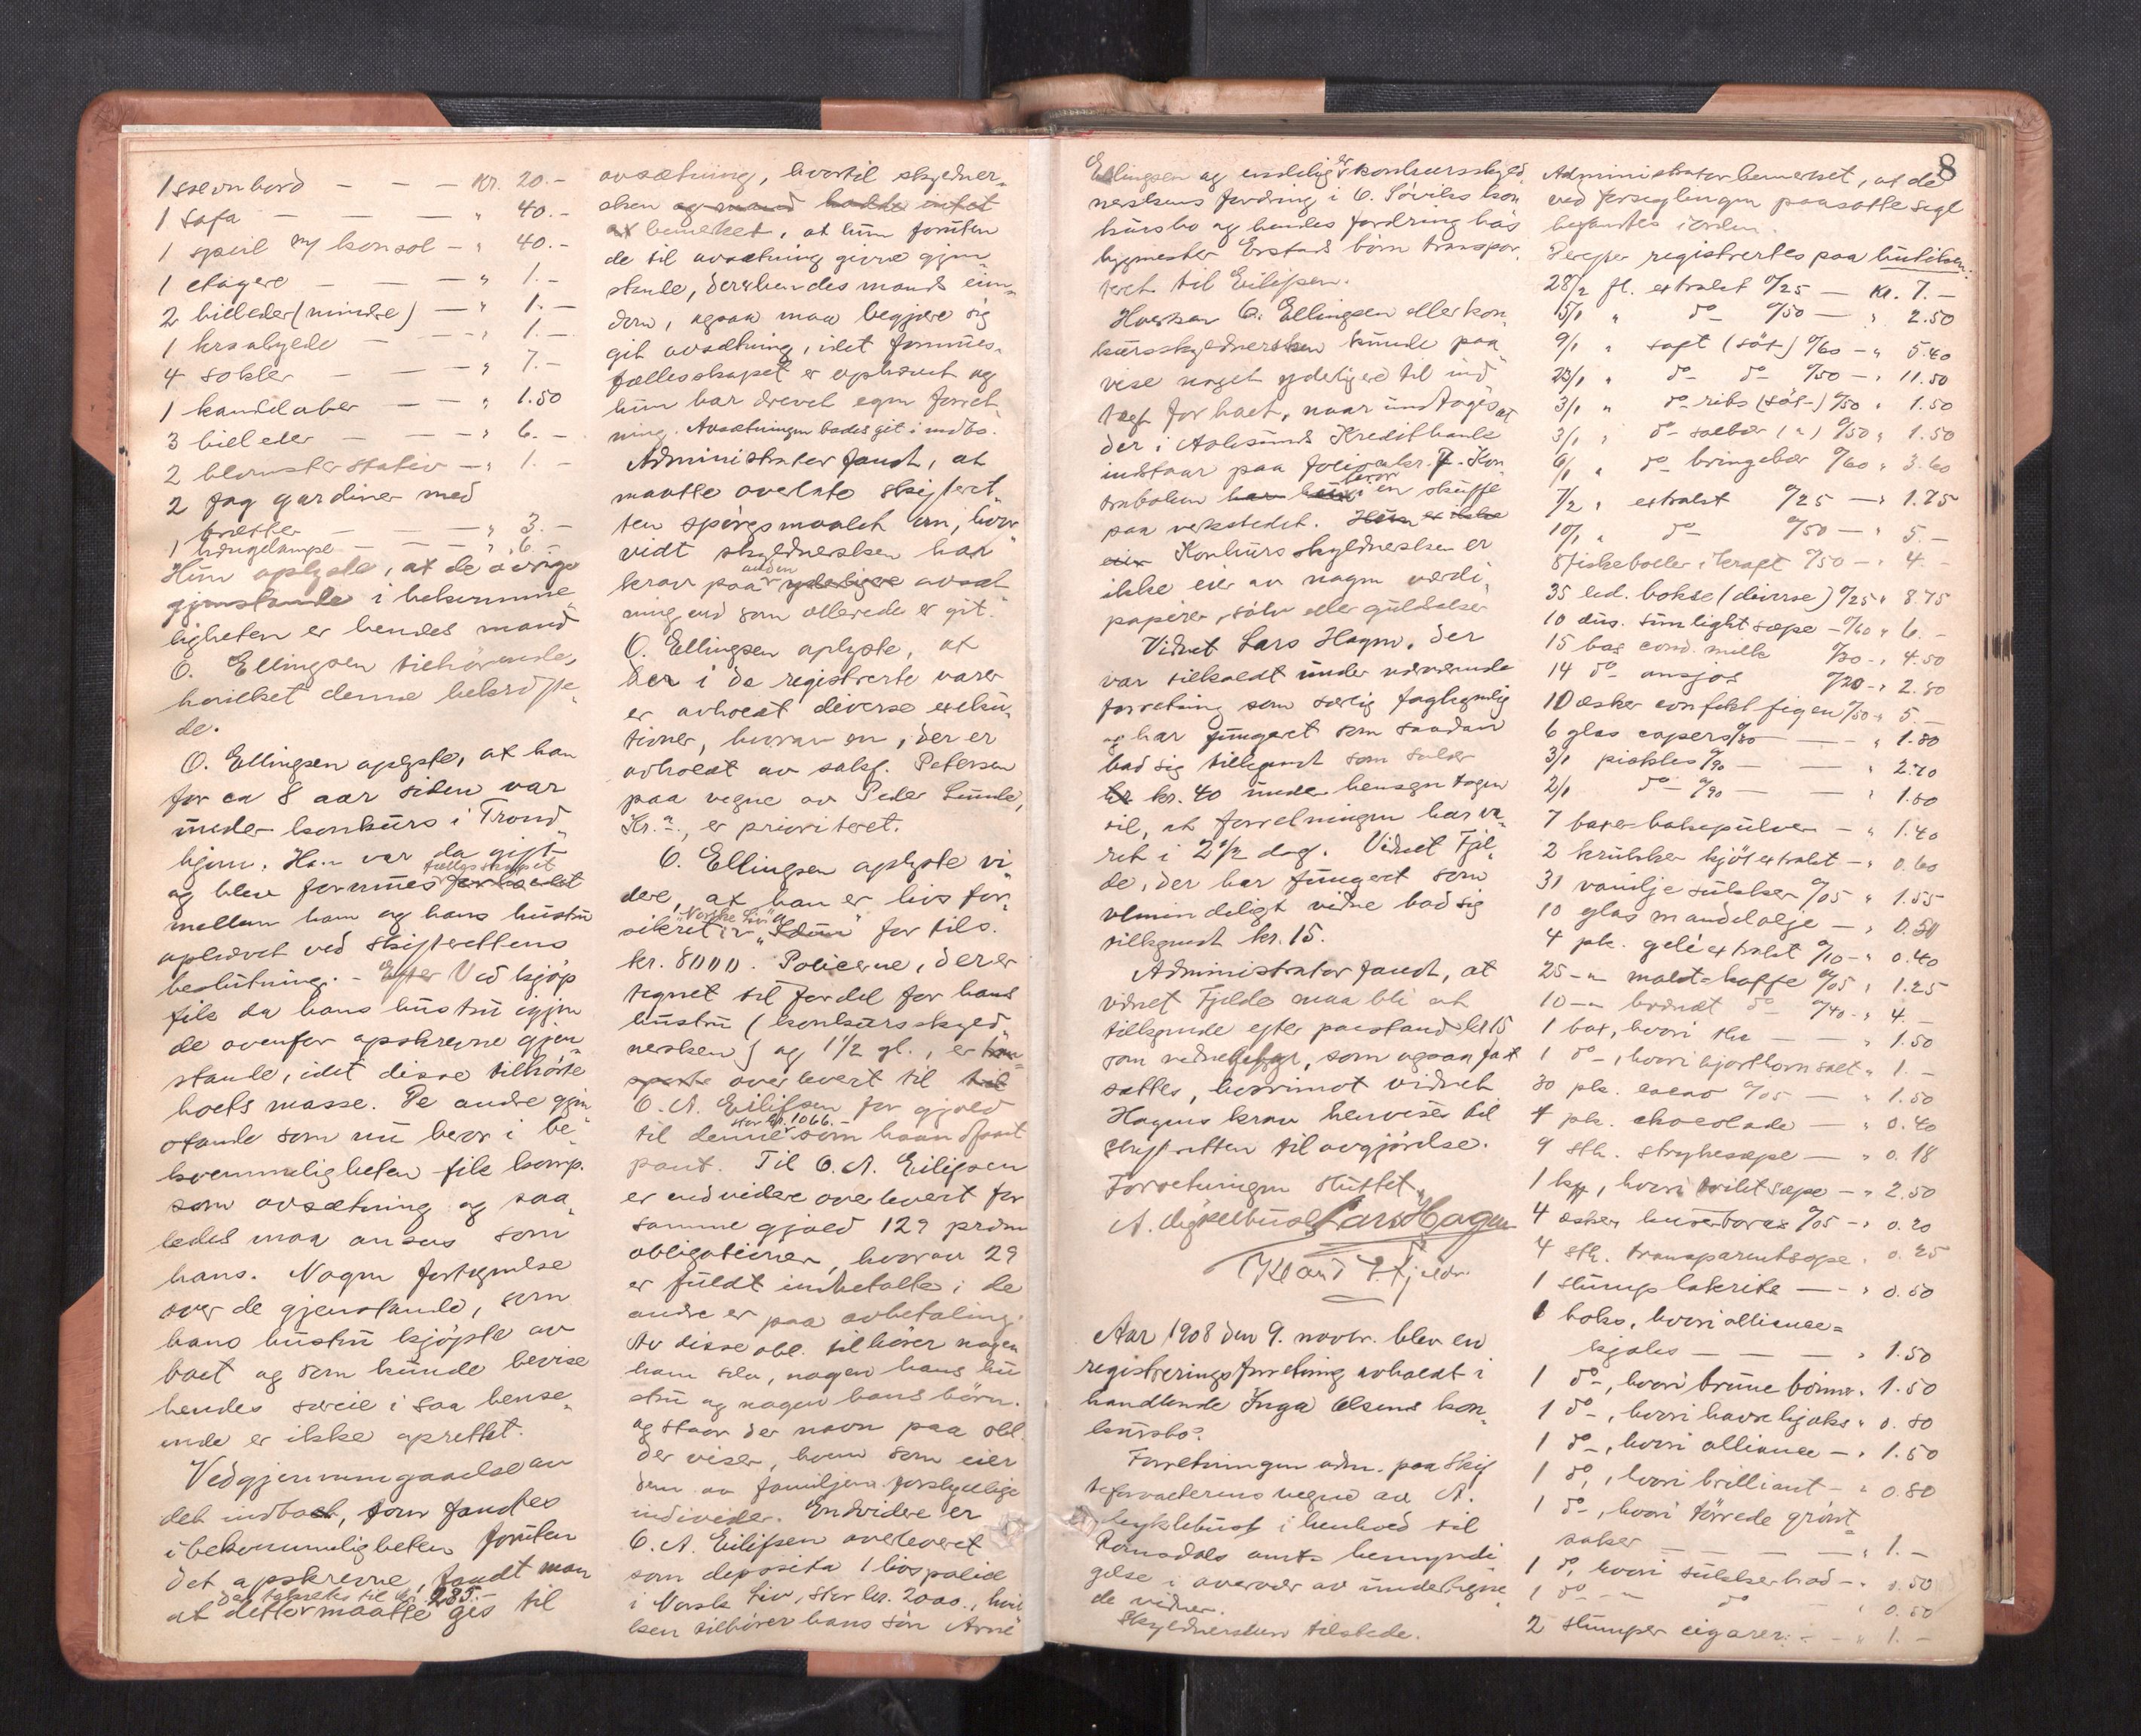 1 savonbord — — — Kr. 20.-
1 sofa — — — " 40.-
1 speil m/ konsol — " 40.-
1 etagere — — — " 1.-
2 billeder (mindre) — " 1.-
1 krakgede — — " 1.-
4 sokler — — — " 7.-
1 kandelaber — — " 1.50
3 billeder — — — " 6.-
2 blomsterstativ — " 1.-
2 fag gardiner med
brætter — — — " 3.-
1 hængelampe — — — " 6.-
Hun oplyste, at de øvrige
gjenstande i bekvemme
ligheten er hendes mand
O. Ellingsen tilhörende,
hvilket denne bekræfte-
de.
O. Ellingsen oplyste, at han
for ca 8 aar siden var
under konkurs i Trond-
hjem. Han var da gift
og blev formues fællesskapet
mellem ham og hans hustru
ophævet ved skifterettens
beslutning. - Efter Ved kjöp
fik da hans hustru igjen
de ovenfor opskrevne gjen-
stande, idet disse tilhörte
boets masse. De andre gjen
stande som nu bero i be-
kvemmeligheten fik komp.
som avsætning og saa-
ledes maa anses som
hans. Nogen fortegnelse
over de gjenstande, som
hans hustru kjöpte av
boet og som kunde bevise
hendes særeie i saa hense-
ende er ikke oprettet.
Ved gjennemgaaelse av
det indbo, som fandtes
i bekvemmeligheten foruten
det opskrevne, fandt man
at dette der takseres til kr. 285.- maatte gis til
avsætning, hvortil skyldner-
sken og mand hadde intet
at bemerket, at hun foruten
de til avsætning givne gjen-
stande, der er hendes mands eien-
dom, ogsaa maa begjære sig
git avsætning, idet formues-
fællesskapet er ophævet og
hun har drevet egen forret-
ning. Avsætningen bades git i indbo.
Administrator fandt, at
maatte overlate skifteret-
ten spörgsmaalet om, hvor
vidt skyldnersken har
krav paa anden yderligere avsæt-
ning end som allerede er git.
O. Ellingsen oplyste, at
der i de registrerte varer
er avholdt diverse exeku-
tioner, hvorav en, der er
avholdt av sakf. Petersen
paa vegne av Peder Lunde,
Kr.a., er prioritert.
O. Ellingsen oplyste vi-
dere, at han er livsfor-
sikret i "Norske Liv" og "Idun" for tils.
kr. 8000. Policerne, der er
tegnet til fordel for hans
hustru (konkursskyld-
nersken) og 1 1/2 gl., er
overlevert til
O. A. Eilifsen for gjæld
til denne stor kr. 1066.- som haandfaat
pant. Til O. A. Eilifsen
er endvidere overlevert for
samme gjæld 129 præm
obligationer, hvorav 29
er fuldt indbetalte; de
andre er paa avbetaling.
Av disse obl. tilhörer nogen
ham selv, nogen hans hu
stru og nogen hans börn,
og staar der navn paa obl.
der viser, hvem som eier
dem av familjens forskjellige
individer. Endvidere er
O. A. Eilifsen overleveret
som deposita 1 livspolice
i Norsk Liv, stor kr. 2000., hvil
ken tilhörer hans sön Arne
8
Ellingsen og endelig er konkursskyld-
nerskens fordring i O. Sörviks kon
kursbo og hendes fordring hos
bygmester Erstads börn transpor-
tert til Eilifsen.
Hverken O. Ellingsen eller kon-
kursskyldnersken kunde paa
vise noget yderligere til ind-
tægt for boet, naar undtages at
der i Aalesunds Kreditbank
indstaar paa folio kr. 7. Kon-
trabolen beror i en skuffe
paa verkstedet. Hun er ikke
eier Konkursskyldnersken er
ikke eier av nogen værdi-
papirer, sölv eller guldsaker
Vidnet Lars Hagen, der
var tilkaldt under nærværende
forretning som særlig fagkyndig
og har fungert som saadan
bad sig tilkjendt som salær
kr. 40 under hensyn tagen
til, at forretningen har va-
ret i 2 1/2 dag. Vidnet Fjel-
de, der har fungert som
almindeligt vidne bad sig
tilkjendt kr. 15.
Administrator fandt, at
vidnet Fjelde maa bli at
tilkjende efter paastand kr 15
som vidnegebyr, som ogsaa fast
sattes, hvorimot vidnet
Hagens krav henvises til
skifteretten til avgjörelse.
Forretningen sluttet.
A. Lars Hagen
Fjelde.
Aar 1908 den 9. novbr. blev en
registreringsforretning avholdt i
handlende Inga Olsens kon-
kursbo.
Forretningen adm. paa Skif
teforvalterens vegne av A.
i henhold til
Romsdals amts bemyndi
gelse i overvær av undertegne
de vidner.
Skyldnersken tilstede.
Administrator bemerket, at de
ved forseglingen paasatte segl
befandtes i orden.
Derefter registrertes paa butiken:
28/2 fl. extrakt a/25 — Kr. 7.-
5/1 " do a/50 — " 2.50
9/1 " saft (söt) a/60 — " 5.40
23/1 " do do a/50 — " 11.50
3/1 " do ribs (söt) a/50 " 1.50
3/1 " do solbær (") a/50 " 1.50
6/1 " do bringebær a/60 " 3.60
7/2 " extrakt a/25 — " 1.75
10/1 " do a/50 — " 5.-
8 fiskeboller i kraft a/50 — " 4.-
35 led. bokse (diverse) a/25 " 8.75
10 dus. sunlightsæpe — a/60 " 6.-
15 bas cond. melk a/30 — " 4.50
14 do ansjos a/20 — " 2.80
10 æsker confekt figen a/50 " 5.-
6 glas capers a/30 — — " 1.80
3/1 pickles a/90 — — " 2.70
2/1 do a/90 — — " 1.80
7 baxer bakepulver — " 1.40
2 krukker kjötextrakt — " 0.60
31 vanilje sukker a/05 " 1.55
10 glas mandelolje — " 0.50
4 pk. geléextrakt a/10 — " 0.40
25 — " maltkaffe a/05 " 1.25
10 — " brændt do a/40 — " 4.-
1 box, hvori the — — " 1.50
1 do, hvori hjorthornsalt " 1.-
30 pk. cacao a/05 — " 1.50
4 pk. chocolade — " 0.40
9 stk. strykesæpe — " 0.18
1 kg, hvori toiletsæpe — " 2.50
4 æsker a/05 — " 0.20
4 stk. transparentsæpe " 0.25
1 slump lakrits — — " 0.50
1 boks, hvori alliance-
kjæks — — — " 1.50
1 do, hvori brune bönner " 1.50
1 do, hvori havrekjæks " 0.80
1 do, hvori alliance — " 1.50
1 do, hvori brilliant — " 0.80
1 do, hvori törrede grönt-
saker — — — " 1.-
1 do, hvori sukkerbröd — " 0.50
1 do — " do — " 0.50
2 slumper cigarer — — " 1.-